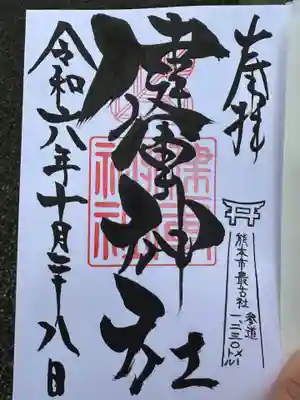 奉拝
熊本市最古社
参道
一、二三〇メートル
健軍神社
健軍
神社
令和六年十月二十八日